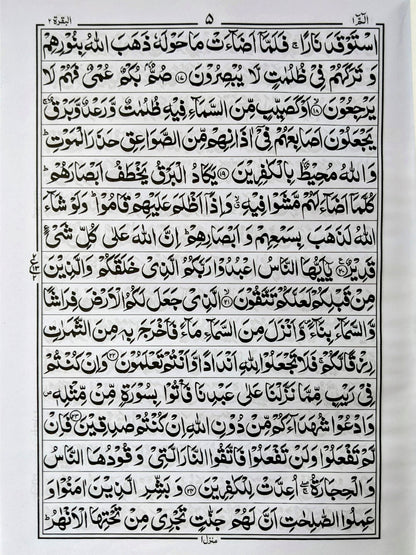 البقرة ٢ ٥ الٓمّٓ ١
اسْتَوْقَدَ نَارًا ۚ فَلَمَّآ اَضَآءَتْ مَا حَوْلَهٗ ذَهَبَ اللّٰهُ بِنُوْرِهِمْ
وَ تَرَكَهُمْ فِيْ ظُلُمٰتٍ لَّا يُبْصِرُوْنَ ﴿١٧﴾ صُمٌّۢ بُكْمٌ عُمْيٌ فَهُمْ لَا
يَرْجِعُوْنَ ﴿١٨﴾ اَوْ كَصَيِّبٍ مِّنَ السَّمَآءِ فِيْهِ ظُلُمٰتٌ وَّ رَعْدٌ وَّ بَرْقٌ ۚ
يَجْعَلُوْنَ اَصَابِعَهُمْ فِيْٓ اٰذَانِهِمْ مِّنَ الصَّوَاعِقِ حَذَرَ الْمَوْتِ ؕ
وَ اللّٰهُ مُحِيْطٌۢ بِالْكٰفِرِيْنَ ﴿١٩﴾ يَكَادُ الْبَرْقُ يَخْطَفُ اَبْصَارَهُمْ ؕ
كُلَّمَآ اَضَآءَ لَهُمْ مَّشَوْا فِيْهِ ۙ وَ اِذَآ اَظْلَمَ عَلَيْهِمْ قَامُوْا ؕ وَ لَوْ شَآءَ
اللّٰهُ لَذَهَبَ بِسَمْعِهِمْ وَ اَبْصَارِهِمْ ؕ اِنَّ اللّٰهَ عَلٰى كُلِّ شَيْءٍ
قَدِيْرٌ ﴿٢٠﴾ يٰٓاَيُّهَا النَّاسُ اعْبُدُوْا رَبَّكُمُ الَّذِيْ خَلَقَكُمْ وَ الَّذِيْنَ
مِنْ قَبْلِكُمْ لَعَلَّكُمْ تَتَّقُوْنَ ﴿٢١﴾ الَّذِيْ جَعَلَ لَكُمُ الْاَرْضَ فِرَاشًا
وَّ السَّمَآءَ بِنَآءً ۪ وَّ اَنْزَلَ مِنَ السَّمَآءِ مَآءً فَاَخْرَجَ بِهٖ مِنَ الثَّمَرٰتِ
رِزْقًا لَّكُمْ ۚ فَلَا تَجْعَلُوْا لِلّٰهِ اَنْدَادًا وَّ اَنْتُمْ تَعْلَمُوْنَ ﴿٢٢﴾ وَ اِنْ كُنْتُمْ
فِيْ رَيْبٍ مِّمَّا نَزَّلْنَا عَلٰى عَبْدِنَا فَاْتُوْا بِسُوْرَةٍ مِّنْ مِّثْلِهٖ ۪
وَ ادْعُوْا شُهَدَآءَكُمْ مِّنْ دُوْنِ اللّٰهِ اِنْ كُنْتُمْ صٰدِقِيْنَ ﴿٢٣﴾ فَاِنْ
لَّمْ تَفْعَلُوْا وَ لَنْ تَفْعَلُوْا فَاتَّقُوا النَّارَ الَّتِيْ وَقُوْدُهَا النَّاسُ
وَ الْحِجَارَةُ ۖۚ اُعِدَّتْ لِلْكٰفِرِيْنَ ﴿٢٤﴾ وَ بَشِّرِ الَّذِيْنَ اٰمَنُوْا وَ
عَمِلُوا الصّٰلِحٰتِ اَنَّ لَهُمْ جَنّٰتٍ تَجْرِيْ مِنْ تَحْتِهَا الْاَنْهٰرُ ؕ
منزل ١